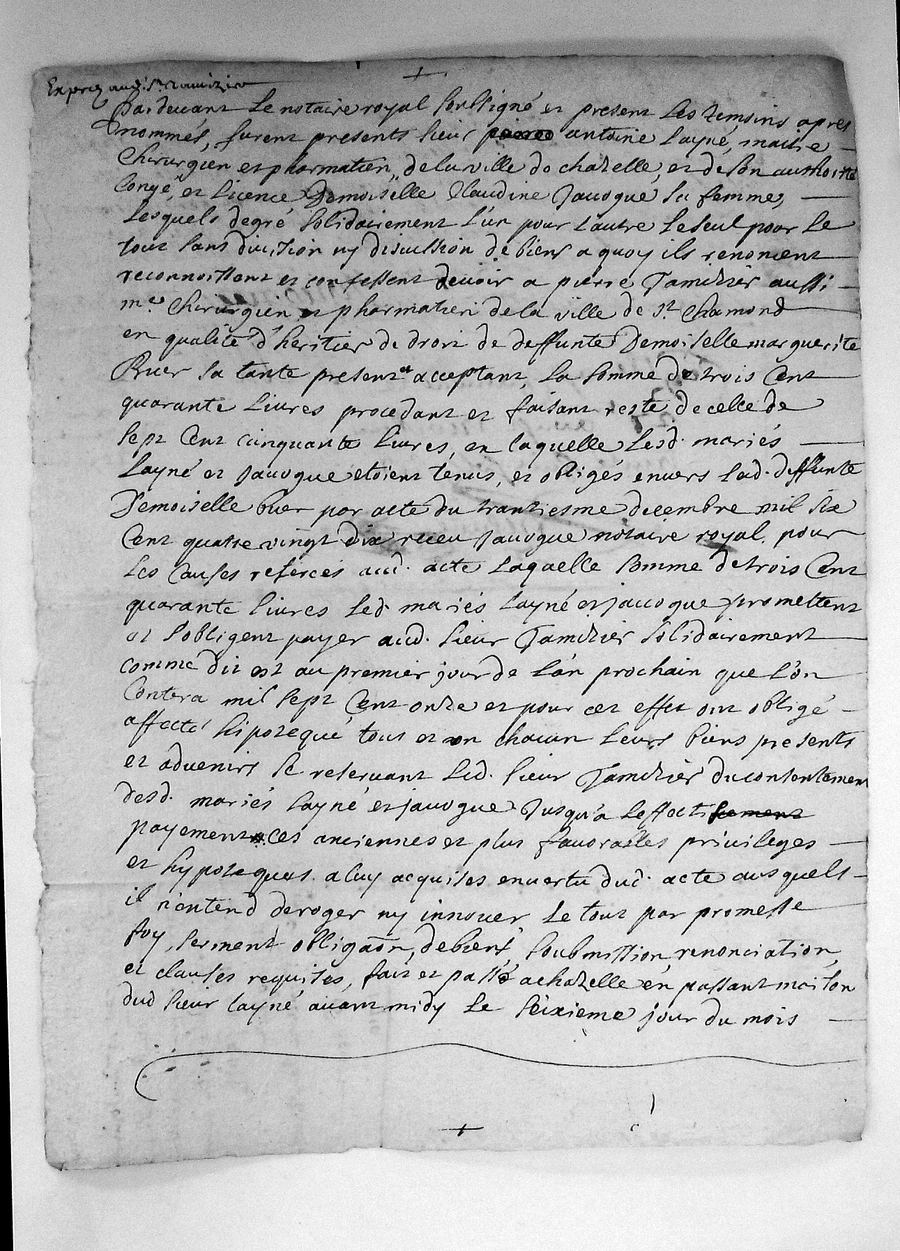 Pardevant Le notaire royal soussigné et present Les temoins apres
nommés, furent presents sieur antoine Layné, maitre
Chirurgien et pharmatien, de la ville de chazelle, et de son authorité
Congé, et Licence Demoiselle Claudine Jauogue sa femme,
Lesquels de gré solidairement L'un pour L'autre Le seul pour Le
tout sans division ny discussion de biens a quoy ils renoncent
reconnoissent et confessent devoir a pierre Tamizier aussi
me. Chirurgien et pharmatien de la ville de St Chamond
en qualité d'heritier de droit de deffunte Demoiselle marguerite
Buer sa tante present et acceptant, La somme de trois Cent
quarante Livres procedant et faisant reste de celle de
sept Cent cinquante Livres, en laquelle Lesd. mariés
Layné et Jauogue etoient tenus, et obligés envers Lad. deffunte
Demoiselle buer par acte du trantiesme decembre mil six
Cent quatre vingt dix receu Jauogue notaire royal, pour
Les Causes referees aud. acte Laquelle somme de trois Cent
quarante Livres Led. mariés Layné et jauogue promettent
et s'obligent payer aud. sieur Tamizier solidairement
comme dit est au premier jour de L'an prochain que L'on
Contera mil sept Cent onze et pour cet effet ont obligé
affecté hipotequé tous et un chacun Leurs biens presents
et advenirs se reservant Led. sieur Tamizier du consentement
desd. mariés Layné et jauogue Jusqu'a L'effectif
payement ces anciennes et plus favorables privileges
et hypoteques a luy acquises en vertu dud. acte ausquels
il n'entend deroger ny innover Le tout par promesse
foy, serment obligaon, de biens, soubmission, renonciation,
et clauses requises, fait et passé a chazelle en passant maison
dud sieur Layné avant midy Le seixieme jour du mois